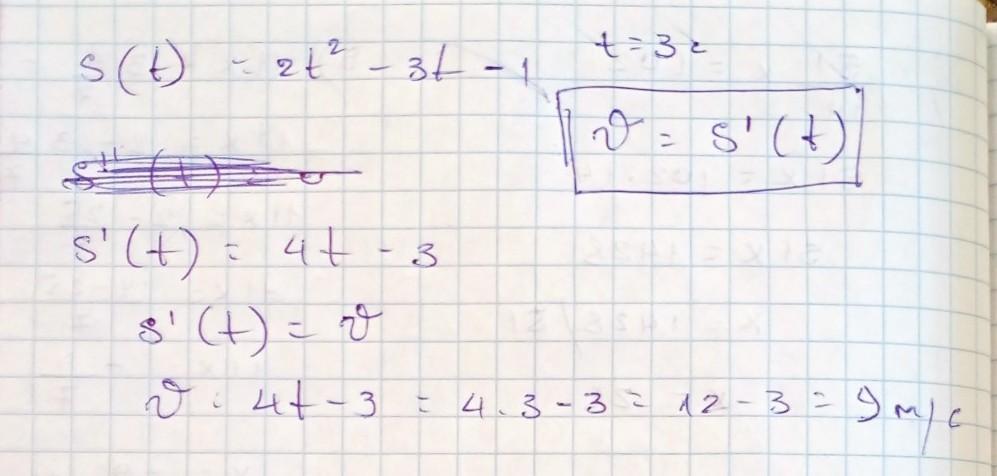 s(t) = 2t² - 3t - 1
t = 3c
v = s'(t)
s'(t) = 4t - 3
s'(t) = v
v = 4t - 3 = 4 . 3 - 3 = 12 - 3 = 9 м/с